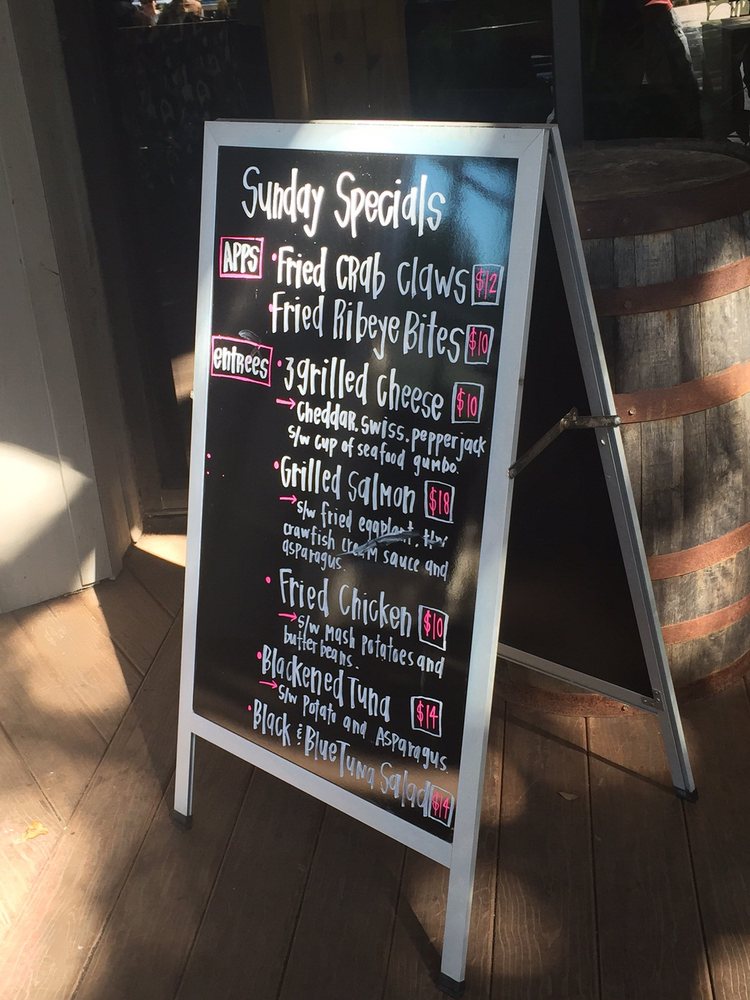 Sunday Specials
APPS
• Fried Crab Claws $12
• Fried Ribeye Bites $10
entrees
• 3 grilled cheese $10
→ cheddar. swiss. pepperjack
s/w cup of seafood gumbo.
• Grilled Salmon $18
→ s/w fried eggplant,
crawfish cream sauce and
asparagus.
• Fried Chicken $10
→ s/w mash potatoes and
butterbeans.
• Blackened Tuna $14
→ s/w potato and Asparagus.
• Black & Blue Tuna Salad $14